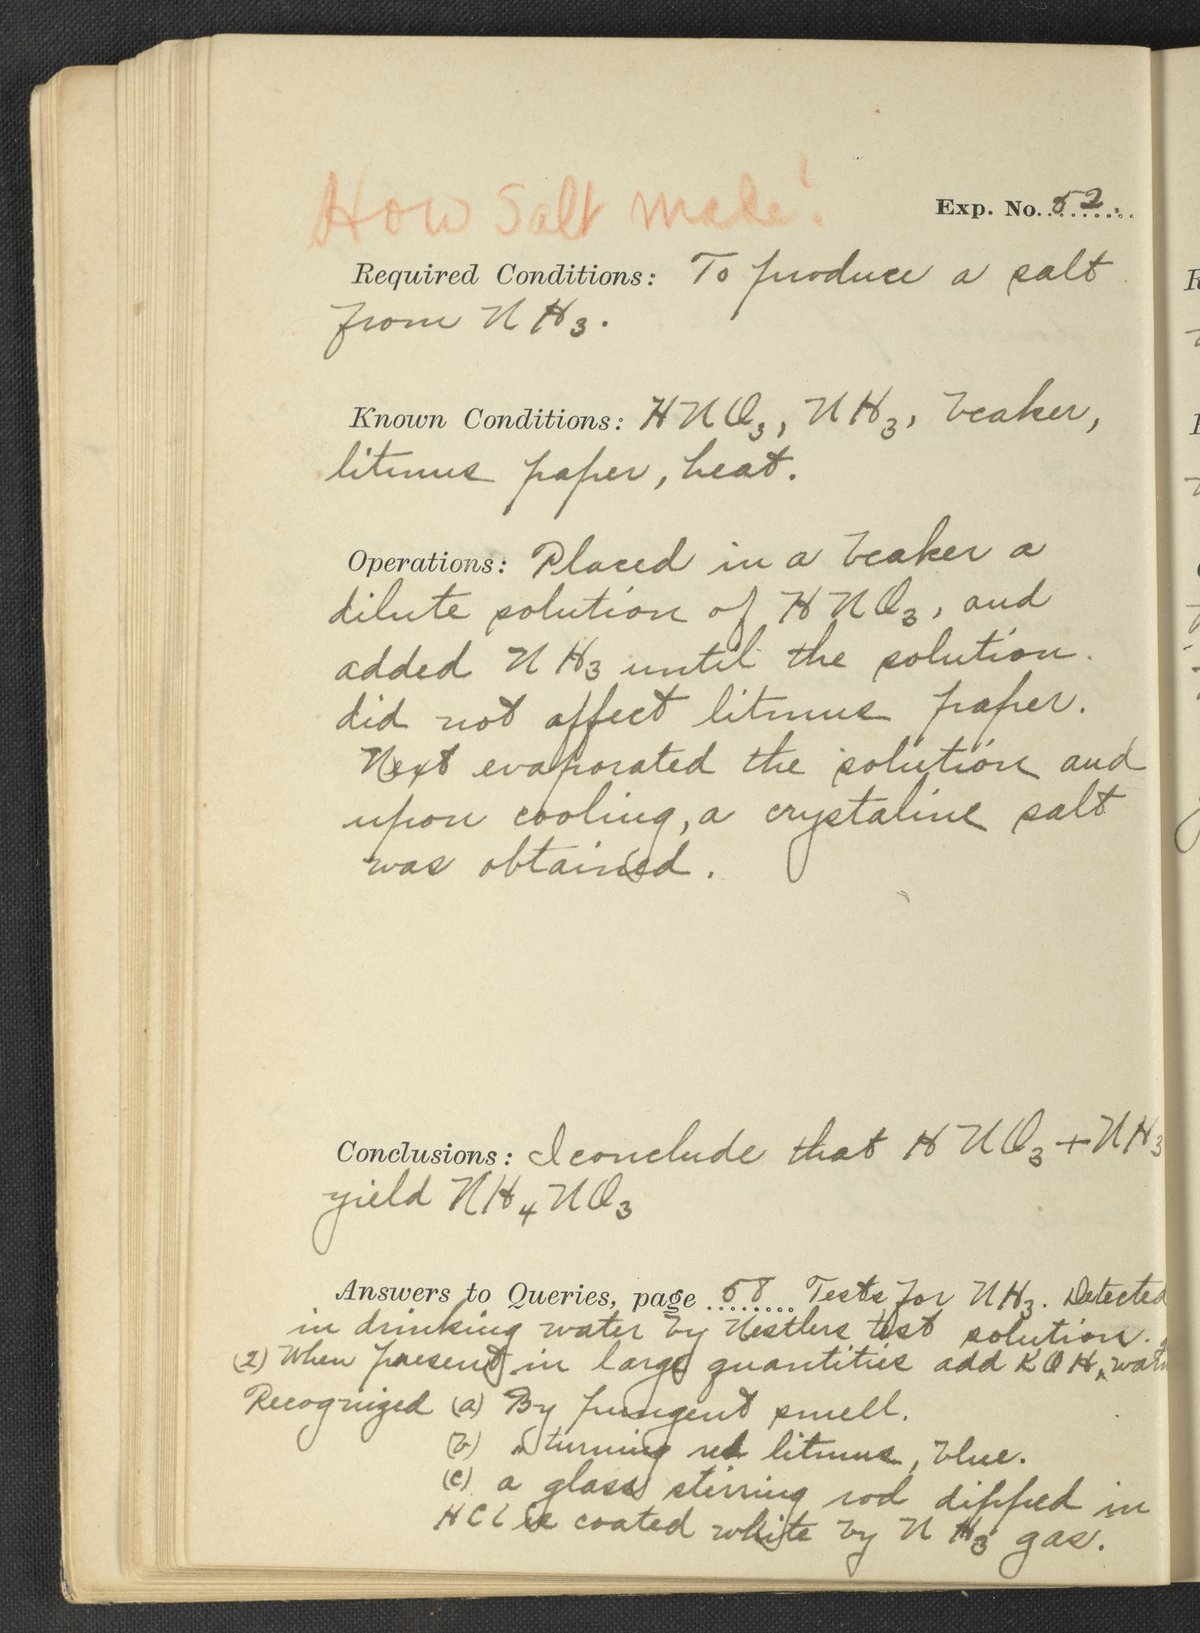 How Salt Made!
Exp. No. 52.
Required Conditions: To produce a salt
from NH3.
Known Conditions: HNO3, NH3, beaker,
litmus paper, heat.
Operations: Placed in a beaker a
dilute solution of HNO3, and
added NH3 until the solution
did not affect litmus paper.
Next evaporated the solution and
upon cooling, a crystaline salt
was obtained.
Conclusions: I conclude that HNO3 + NH3
yield NH4NO3
Answers to Queries, page 58 Tests for NH3. Detected
in drinking water by Nestlers test solution.
(2) When present in large quantities add KOH, warm
Recognized (a) By pungent smell.
(b) in turning red litmus, blue.
(c) a glass stirring rod dipped in
HCl is coated white by NH3 gas.